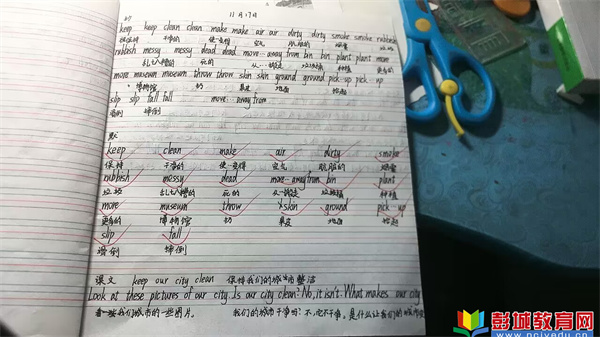 抄
11月17日
keep keep clean clean make make air air dirty dirty smoke smoke rubbish
保持 干净的 使变得 空气 肮脏的 烟雾 垃圾
rubbish messy messy dead dead move away from bin bin plant plant more
乱七八糟的 死的 从…搬走 垃圾桶 种植 更多的
more museum museum throw throw skin skin ground ground pick up pick up
博物馆 扔 果皮 地面 拾起
slip slip fall fall move away from
滑倒 摔倒
默
keep clean make air dirty smoke
保持 干净的 使变得 空气 肮脏的 烟雾
rubbish messy dead move away from bin plant
垃圾 乱七八糟的 死的 从…搬走 垃圾桶 种植
more museum throw skin ground pick up
更多的 博物馆 扔 果皮 地面 拾起
slip fall
滑倒 摔倒
课文 keep our city clean 保持我们的城市整洁
Look at these pictures of our city. Is our city clean? No, it isn't. What makes our city
看一看我们城市的一些图片。 我们的城市干净吗？不，它不干净。是什么让我们的城市
彭城教育网
www.pcjyedu.cn